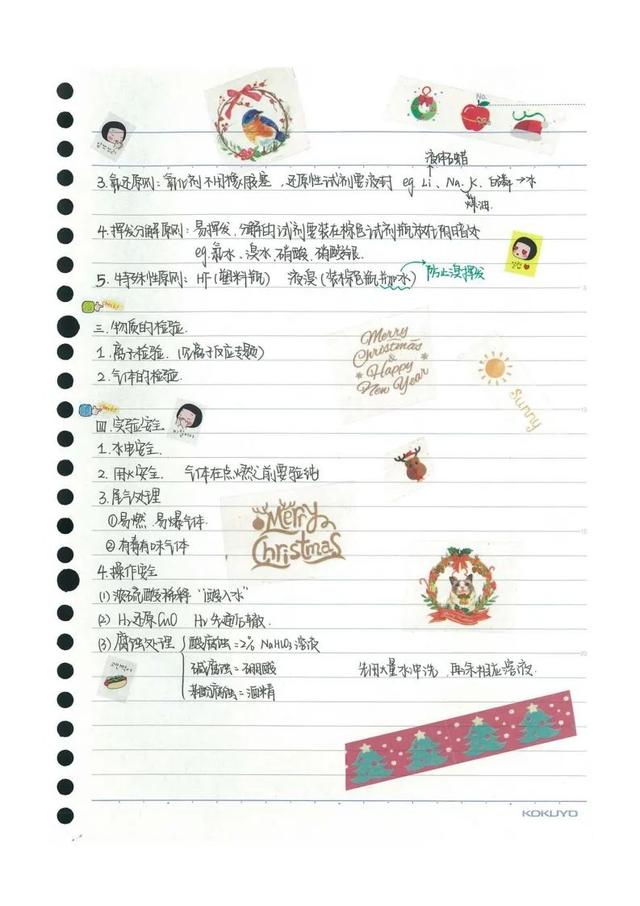 No.
液体石蜡
3.氧还原则：氧化剂不用橡胶塞，还原性试剂要液封 eg Li、Na、K、白磷→水
煤油
4.挥发分解原则：易挥发、分解的试剂要装在棕色试剂瓶放在阴暗处
eg.氯水、溴水、硝酸、硝酸银.
5.特殊性原则：HF(塑料瓶) 液溴(装棕色瓶并加水) 防止溴挥发
三.物质的检验.
1.离子检验.(见离子反应专题)
2.气体的检验.
Merry
Christmas
&
Happy
New Year
Sunny
四.实验安全
1.水电安全.
2.用火安全. 气体在点燃之前要验纯
3.尾气处理
①易燃、易爆气体.
②有毒有味气体
Merry
Christmas
4.操作安全
(1)浓硫酸稀释 "酸入水"
(2) H₂还原CuO H₂先通后撤.
(3)腐蚀处理 酸腐蚀=2% NaHCO₃溶液
碱腐蚀=硼酸 先用大量水冲洗，再涂相应溶液.
苯酚腐蚀=酒精
KOKUYO